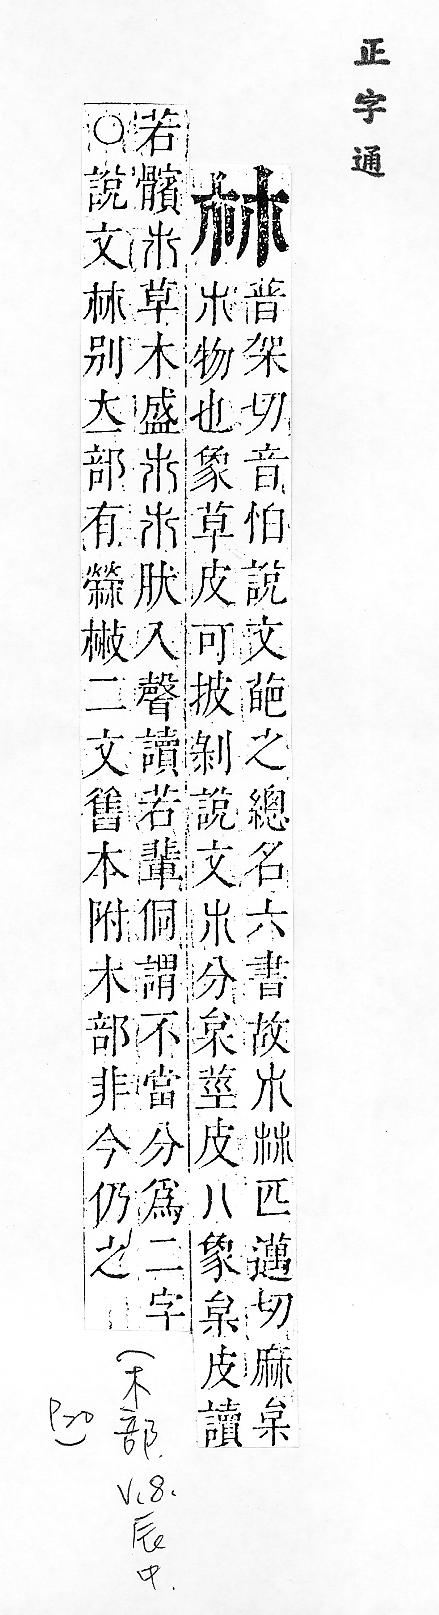 正字通
𣏟
普架切音怕說文葩之總名六書故朩𣏟匹邁切麻枲
朩物也象草皮可披剝說文朩分枲莖皮八象枲皮讀
若髕朩草木盛朩朩朩肰入聲讀若輩侗謂不當分爲二字
○說文𣏟別大部有𣏙𢿱二文舊本附木部非今仍之
(木部
V.8.
辰中.
P20)